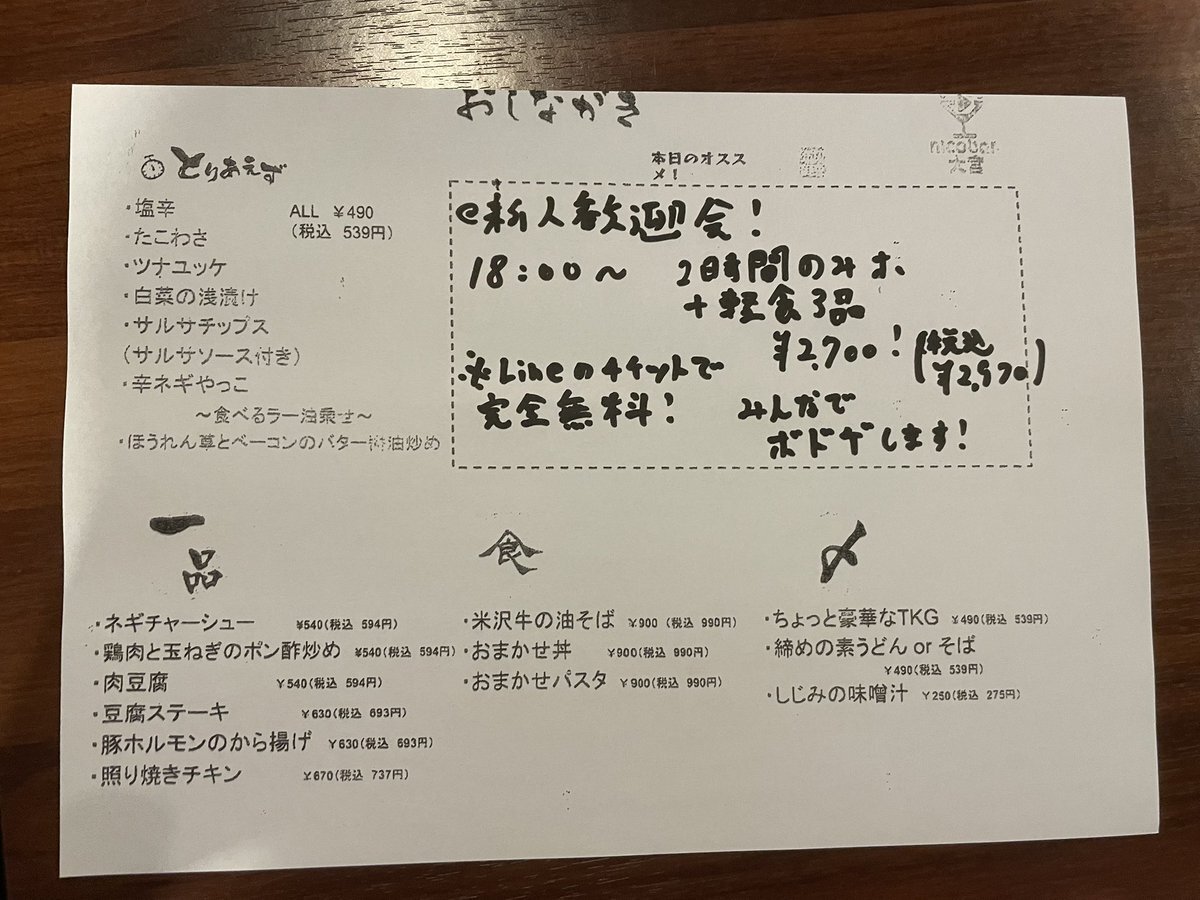 おしながき
nicobar
大宮
とりあえず
・塩辛
ALL ¥490
(税込 539円)
・たこわさ
・ツナユッケ
・白菜の浅漬け
・サルサチップス
(サルサソース付き)
・辛ネギやっこ
～食べるラー油乗せ～
・ほうれん草とベーコンのバター醤油炒め
本日のオスス
メ!
新人歓迎会!
18:00〜 2時間のみホ、
+軽食3品
¥2,700! (税込
¥2,970)
※Lineのチケットで
完全無料! みんなで
ボドゲします!
一
品
・ネギチャーシュー ¥540(税込 594円)
・鶏肉と玉ねぎのポン酢炒め ¥540(税込 594円)
・肉豆腐 ¥540(税込 594円)
・豆腐ステーキ ¥630(税込 693円)
・豚ホルモンのから揚げ ¥630(税込 693円)
・照り焼きチキン ¥670(税込 737円)
食
・米沢牛の油そば ¥900 (税込 990円)
・おまかせ丼 ¥900(税込 990円)
・おまかせパスタ ¥900(税込 990円)
〆
・ちょっと豪華なTKG ¥490(税込 539円)
・締めの素うどん or そば
¥490(税込 539円)
・しじみの味噌汁 ¥250(税込 275円)